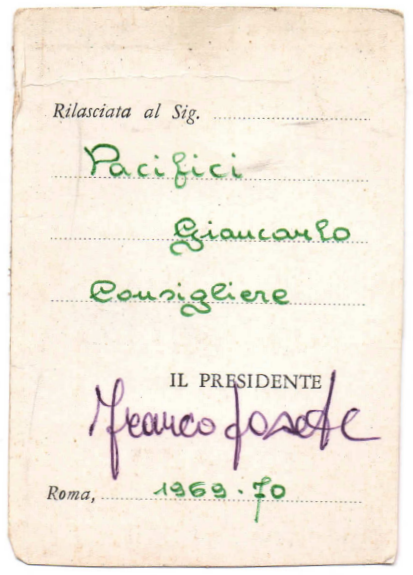 Rilasciata al Sig.
Pacifici
Giancarlo
Consigliere
IL PRESIDENTE
Franco
Roma, 1969-70